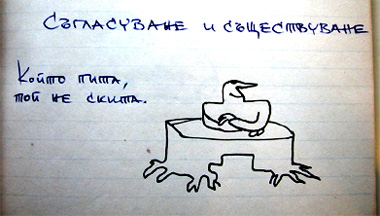 Съгласуване и съществуване
Който пита,
той не скита.